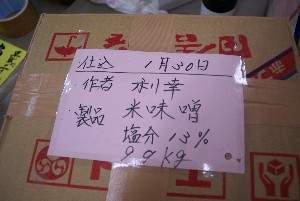 仕込 1月30日
作者 利幸
製品 米味噌
塩分 13%
9.9kg